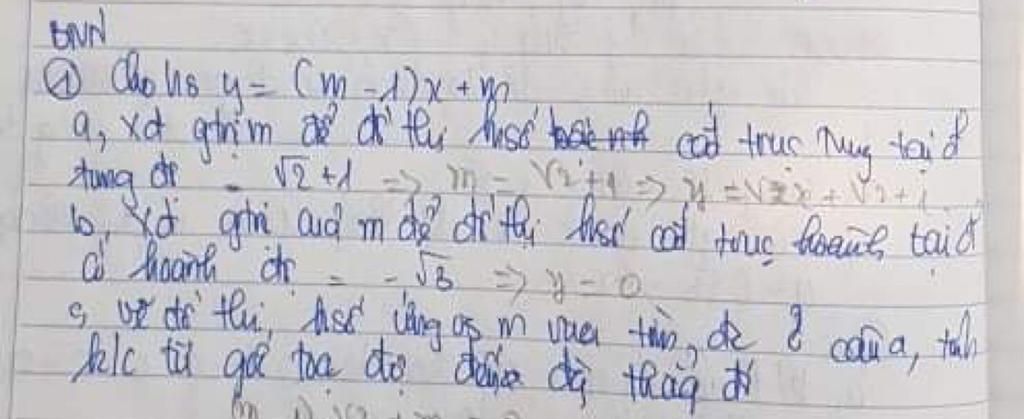 BNN
① Cho hs y = (m - 1)x + m
a, Xđ gtrị m để đồ thị hsố cắt trục tung tại đ
tung độ = √2 + 1 => m = √2 + 1 => y = √2x + √2 + 1
b, Xđ gtrị của m để đồ thị hsố cắt trục hoành tại đ
có hoành độ = -√3 => y = 0
c, vẽ đồ thị hsố ứng m vừa tìm đc ở câu a, tính
k/c từ gốc tọa độ đến đg thẳg đó